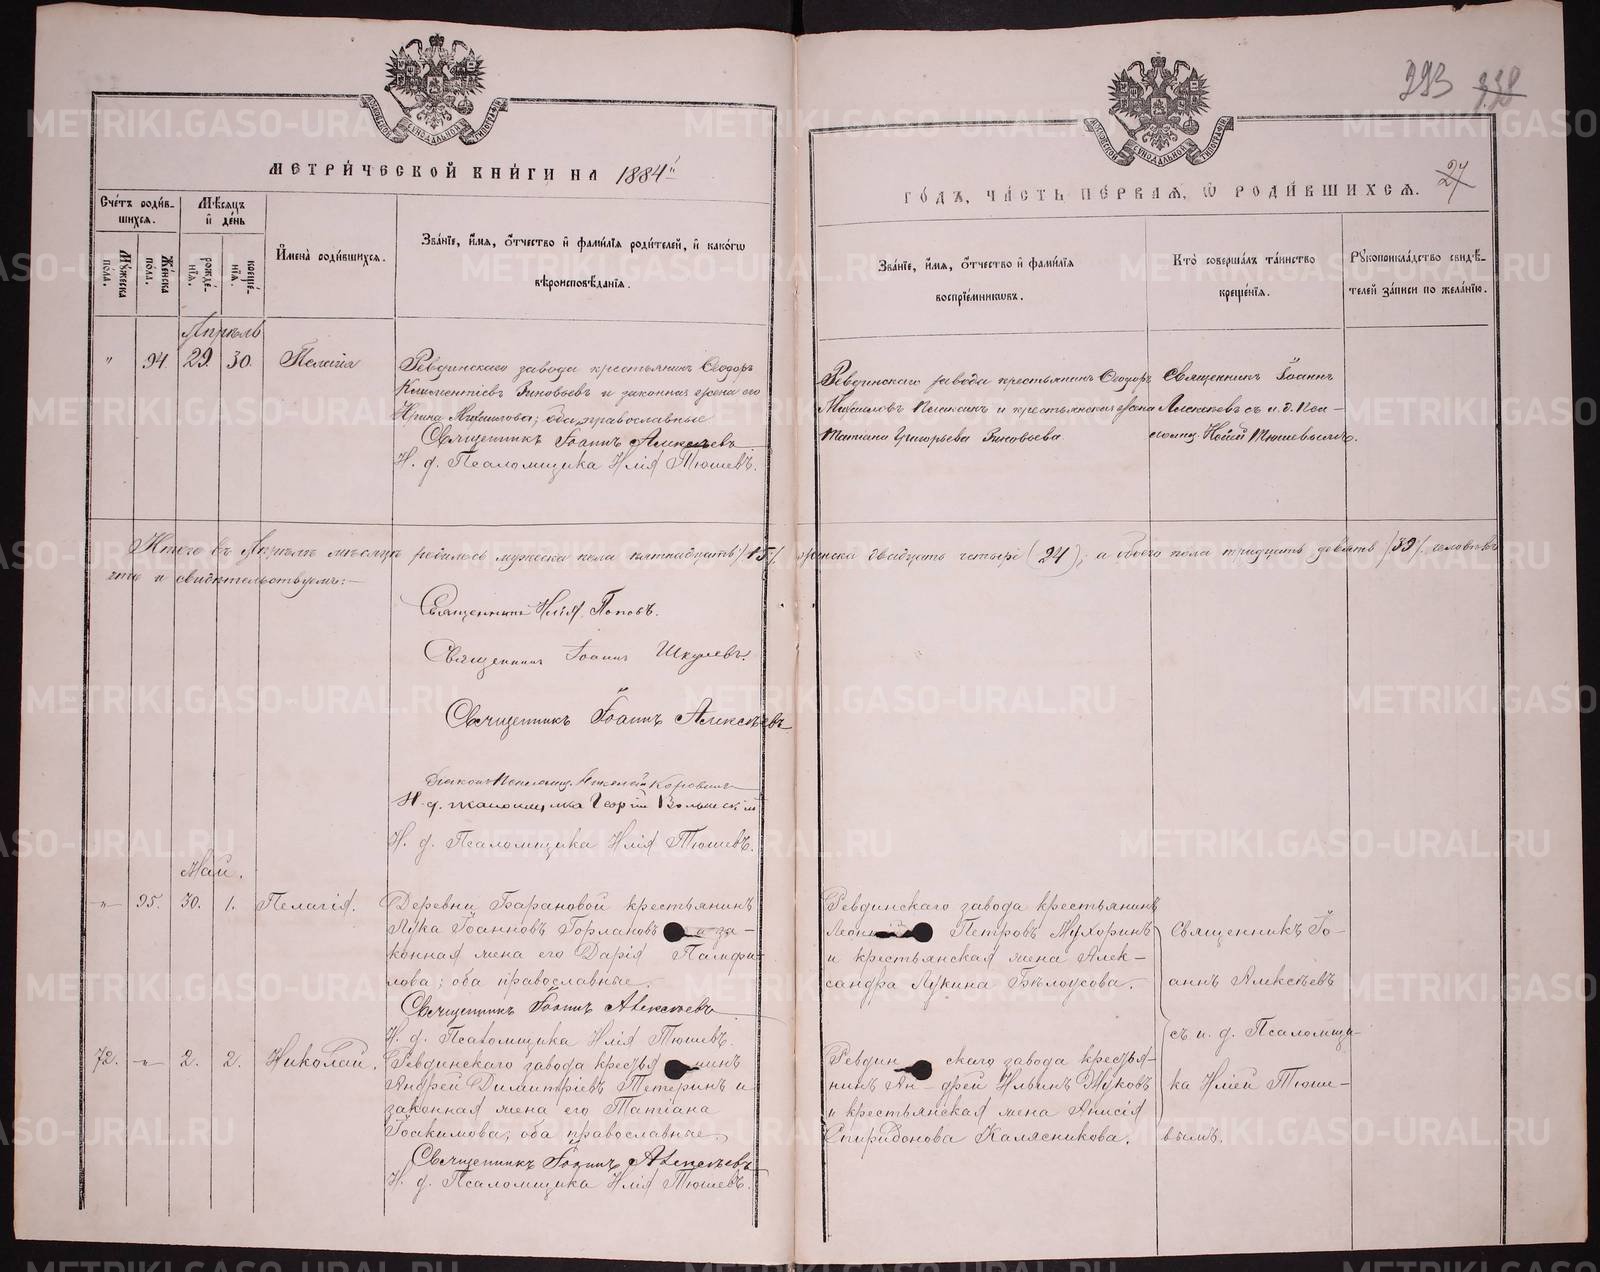 МЕТРИЧЕСКОЙ КНИГИ НА 1884й
ГОДЪ, ЧАСТЬ ПЕРВАЯ, Ѡ РОДИВШИХСЯ.
293
27
Счетъ родив-
шихся.
Мужеска
пола.
Женска
пола.
Мѣсяцъ
и день
рожде-
нія.
креще-
нія.
Имена родившихся.
Званіе, имя, ѿчество и фамилія родителей, и какогѡ
вѣроисповѣданія.
Званіе, имя, ѿчество и фамилія
воспріемниковъ.
Кто совершалъ таинство
крещенія.
Рукоприкладство свидѣ-
телей записи по желанію.
Апрѣль
" 94. 29. 30. Пелагія
Ревдинскаго завода крестьянинъ Ѳеодоръ
Климентіевъ Зиновьевъ и законная жена его
Ирина Михаилова; оба православные
Священникъ Іоаннъ Алексѣевъ
И. д. Псаломщика Илія Тюшевъ.
Ревдинскаго завода крестьянинъ Ѳеодоръ
Михаиловъ и крестьянская жена
Татіана Григорьева Зиновьева
Священникъ Іоаннъ
Алексѣевъ съ и. д. Пса-
ломщ. Иліей Тюшевымъ.
Итого въ Апрѣлѣ мѣсяцѣ родилось мужеска пола пятнадцать /15/, женска двадцать четыре (24), а обоего пола тридцать девять /39/ человѣкъ
что и свидѣтельствуемъ:—
Священникъ Илія Поповъ.
Священникъ Іоаннъ Шкулевъ.
Священникъ Іоаннъ Алексѣевъ
Діаконъ Псаломщ. Коровинъ
И. д. псаломщика Георгій
И. д. Псаломщика Илія Тюшевъ.
Май.
-"- 95. 30. 1. Пелагія.
Деревни Барановой крестьянинъ
Лука Іоанновъ Горлановъ и за-
конная жена его Дарія Памфи-
лова; оба православные.
Священникъ Іоаннъ Алексѣевъ
И. д. Псаломщика Илія Тюшевъ.
Ревдинскаго завода крестьянинъ
Петровъ Мухоринъ
и крестьянская жена Алек-
сандра Лукина Бѣлоусова.
Священникъ Іо-
аннъ Алексѣевъ
съ и. д. Псаломщи-
ка Иліей Тюше-
вымъ.
72. -"- 2. 2. Николай.
Ревдинскаго завода крестьянинъ
Андрей Димитріевъ Петеринъ и
законная жена его Татіана
Іоакимова; оба православные
Священникъ Іоаннъ Алексѣевъ
И. д. Псаломщика Илія Тюшевъ.
Ревдинскаго завода крестья-
нинъ Андрей Ильинъ Жуковъ
и крестьянская жена Анисія
Спиридонова Калясникова.
METRIKI.GASO-URAL.RU